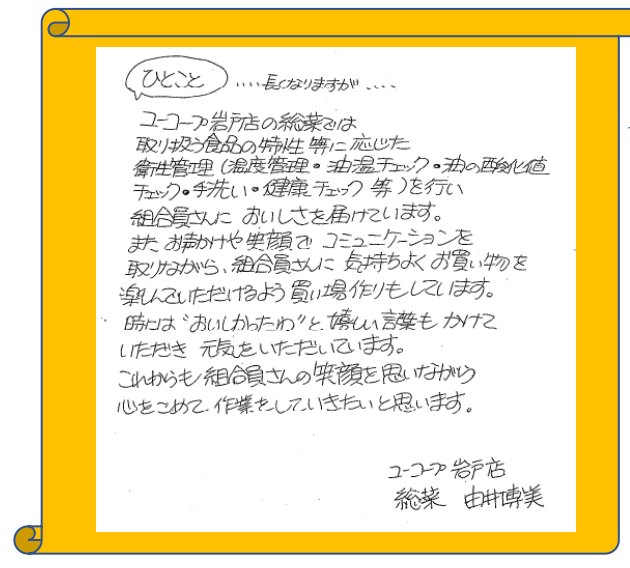 ひとこと ‥‥長くなりますが‥‥
ユーコープ岩戸店の総菜では
取り扱う食品の特性等に応じた
衛生管理(温度管理・油温チェック・油の酸化値
チェック・手洗い・健康チェック 等)を行い
組合員さんに おいしさを届けています。
また お声かけや笑顔で コミュニケーションを
取りながら、組合員さんに 気持ちよくお買い物を
楽しんでいただけるよう買い場作りもしています。
時には“おいしかったわ”と、嬉しい言葉も かけて
いただき 元気をいただいています。
これからも組合員さんの笑顔を思いながら
心をこめて、作業をしていきたいと思います。
ユーコープ 岩戸店
総菜 由井博美